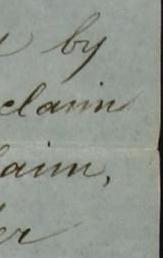 by
claim
aim,
er